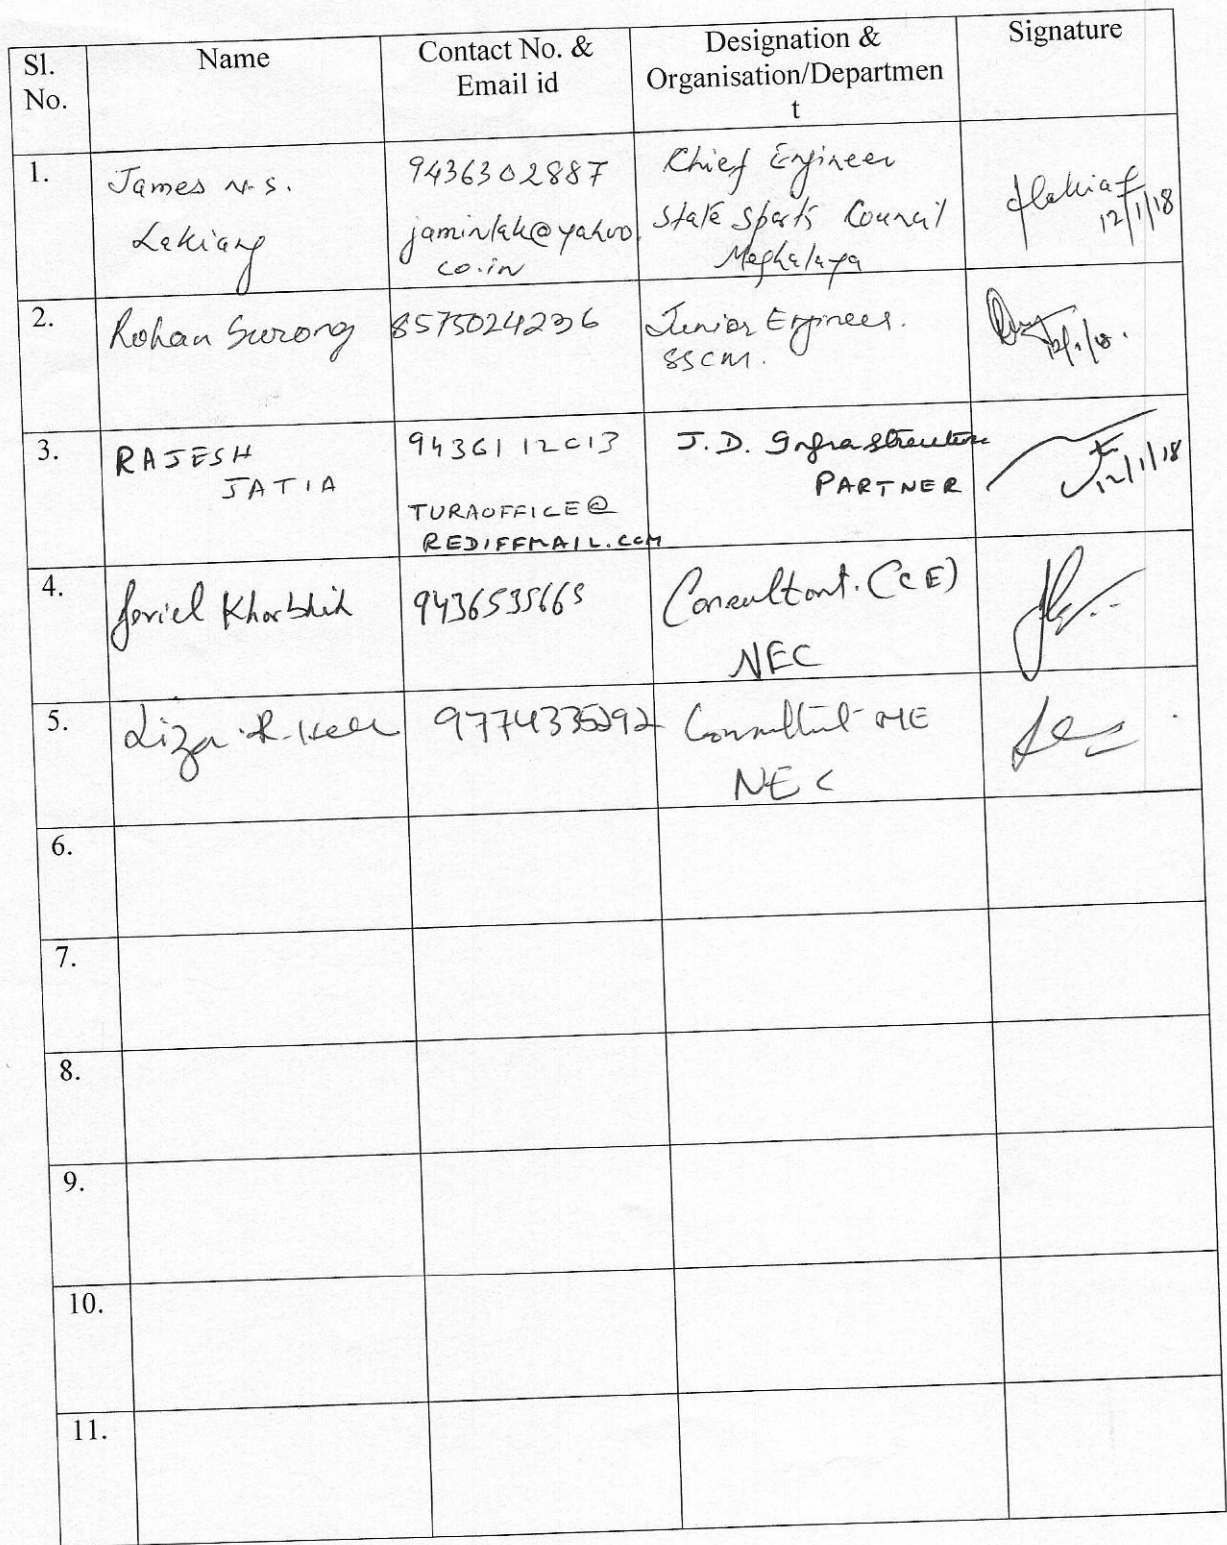 Sl. No.
Name
Contact No. & Email id
Designation & Organisation/Departmen
t
Signature
1.
James N.S.
Lakiang
9436302887
jaminlak@yahoo.
co.in
Chief Engineer
State Sports Council
Meghalaya
12/1/18
2.
Rohan Surong
8575024236
Junior Engineer.
SSCM.
12/1/18.
3.
RAJESH
JATIA
9436112013
TURAOFFICE@
REDIFFMAIL.COM
J.D. Infrastructure
PARTNER
12/1/18
4.
Khorbhih
9436535665
Consultant. (CE)
NEC
5.
Liza R.
9774335292
Consultant ME
NEC
6.
7.
8.
9.
10.
11.